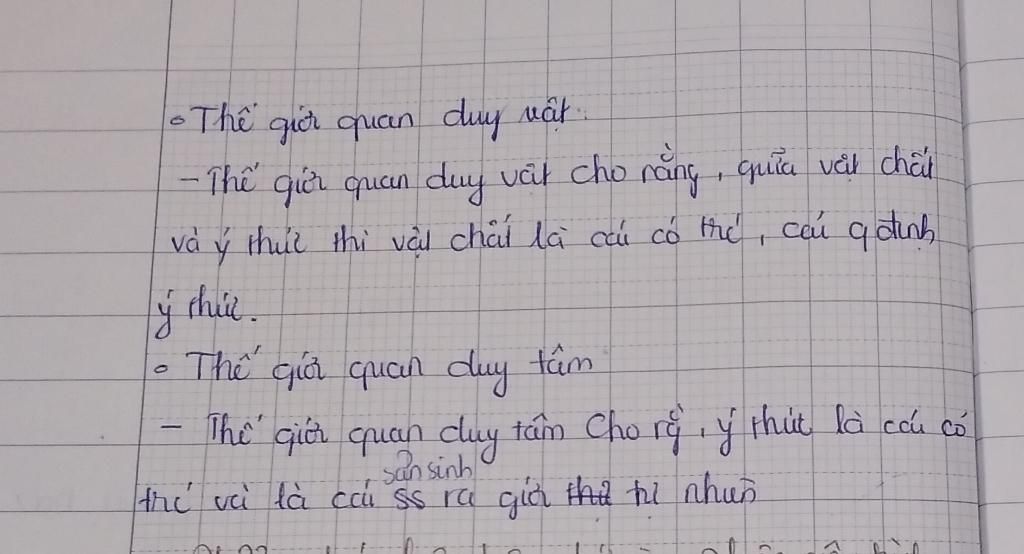 ∘ Thế giới quan duy vật.
- Thế giới quan duy vật cho rằng, giữa vật chất
và ý thức thì vật chất là cái có trc, cái qđịnh
ý thức.
∘ Thế giới quan duy tâm
- Thế giới quan duy tâm cho rg, ý thức là cái có
sản sinh
trc và là cái ss ra giới tự nhiên